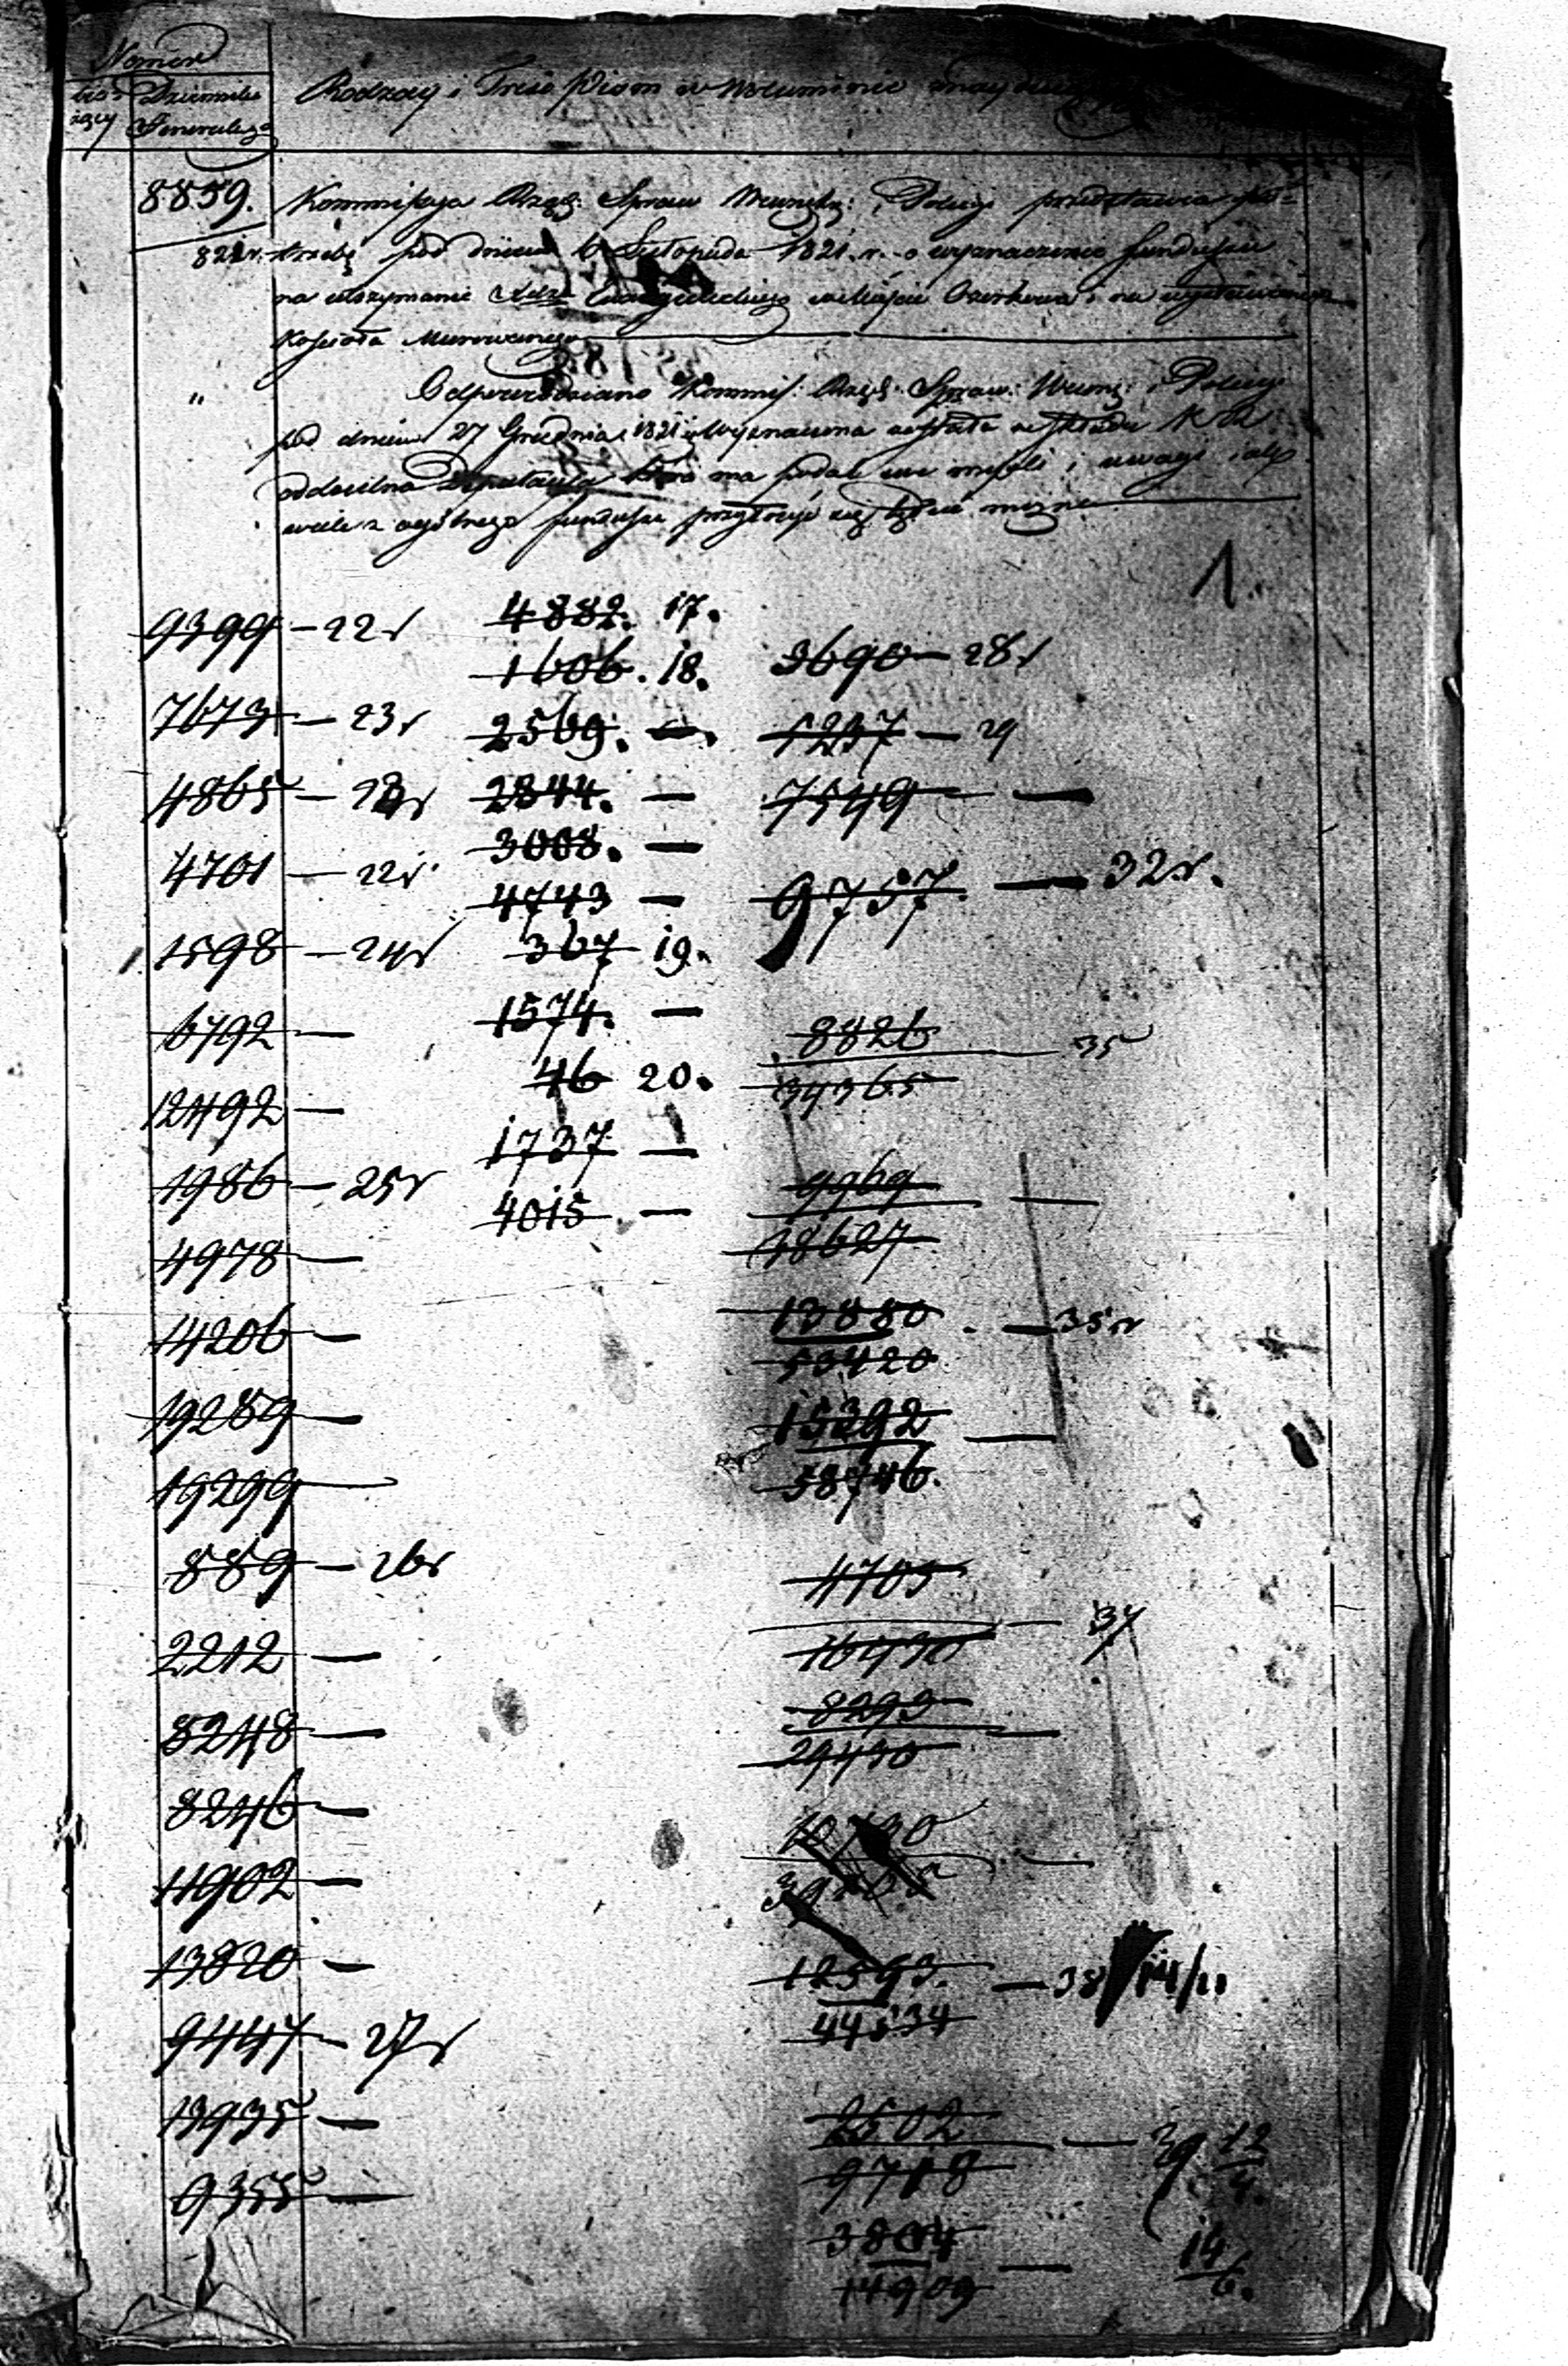 Numer
Dziennika
Generalnego
Rodzay i Treść Pism w Woluminie znayduiących
8859.
821 r.
Kommissya Rząd: Spraw Wewnętrz: i Policyi przedstawia po-
trzebę pod dniem 6 Listopada 1821. r. o wyznaczenie funduszu
na utrzymanie Xdza Ewangelickiego w Mieście Ozorkowie i na wystawienie
Kościoła Murowanego
"
Odpowiedziano Kommis: Rząd: Spraw: Wewnę: i Policyi
pod dniem 27 Grudnia 1821 Wyznaczona została
oddzielna Deputacya która ma podać swe myśli i uwagi iak
wiele z ogólnego funduszu przyłożyć się będzie można
1.
9399 — 22 r
7673 — 23 r
4865 — 23 r
4701 — 22 r
1598 — 24 r
6792 —
12492 —
1986 — 25 r
4978 —
14206 —
19289 —
19299 —
889 — 26 r
2212 —
8248 —
8246 —
11902 —
13820 —
9447 — 27 r
13935 —
9355 —
4882. 17.
1606. 18.
2569. —.
2844. —
3008. —
4743 —
367 19.
1574. —
46 20.
1737 —
4015. —
3690 — 28 r
1237 — 29
7549 — —
9757. — 32 r.
8826 — 35
34365
9969 —
18627
13880. — 35 r
53420
15392 —
58746.
4705 — 37
16930
8293 —
29430
12593. — 38 14/11
44534
2502 — 39 12/4.
9718
3804 — 14/6.
14909